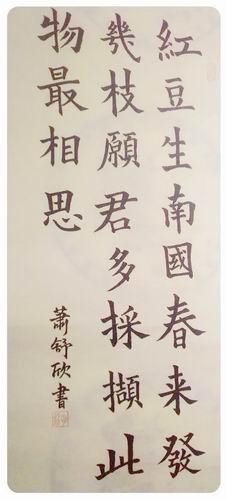 紅豆生南國春来發
幾枝願君多採擷此
物最相思
蕭舒欣書